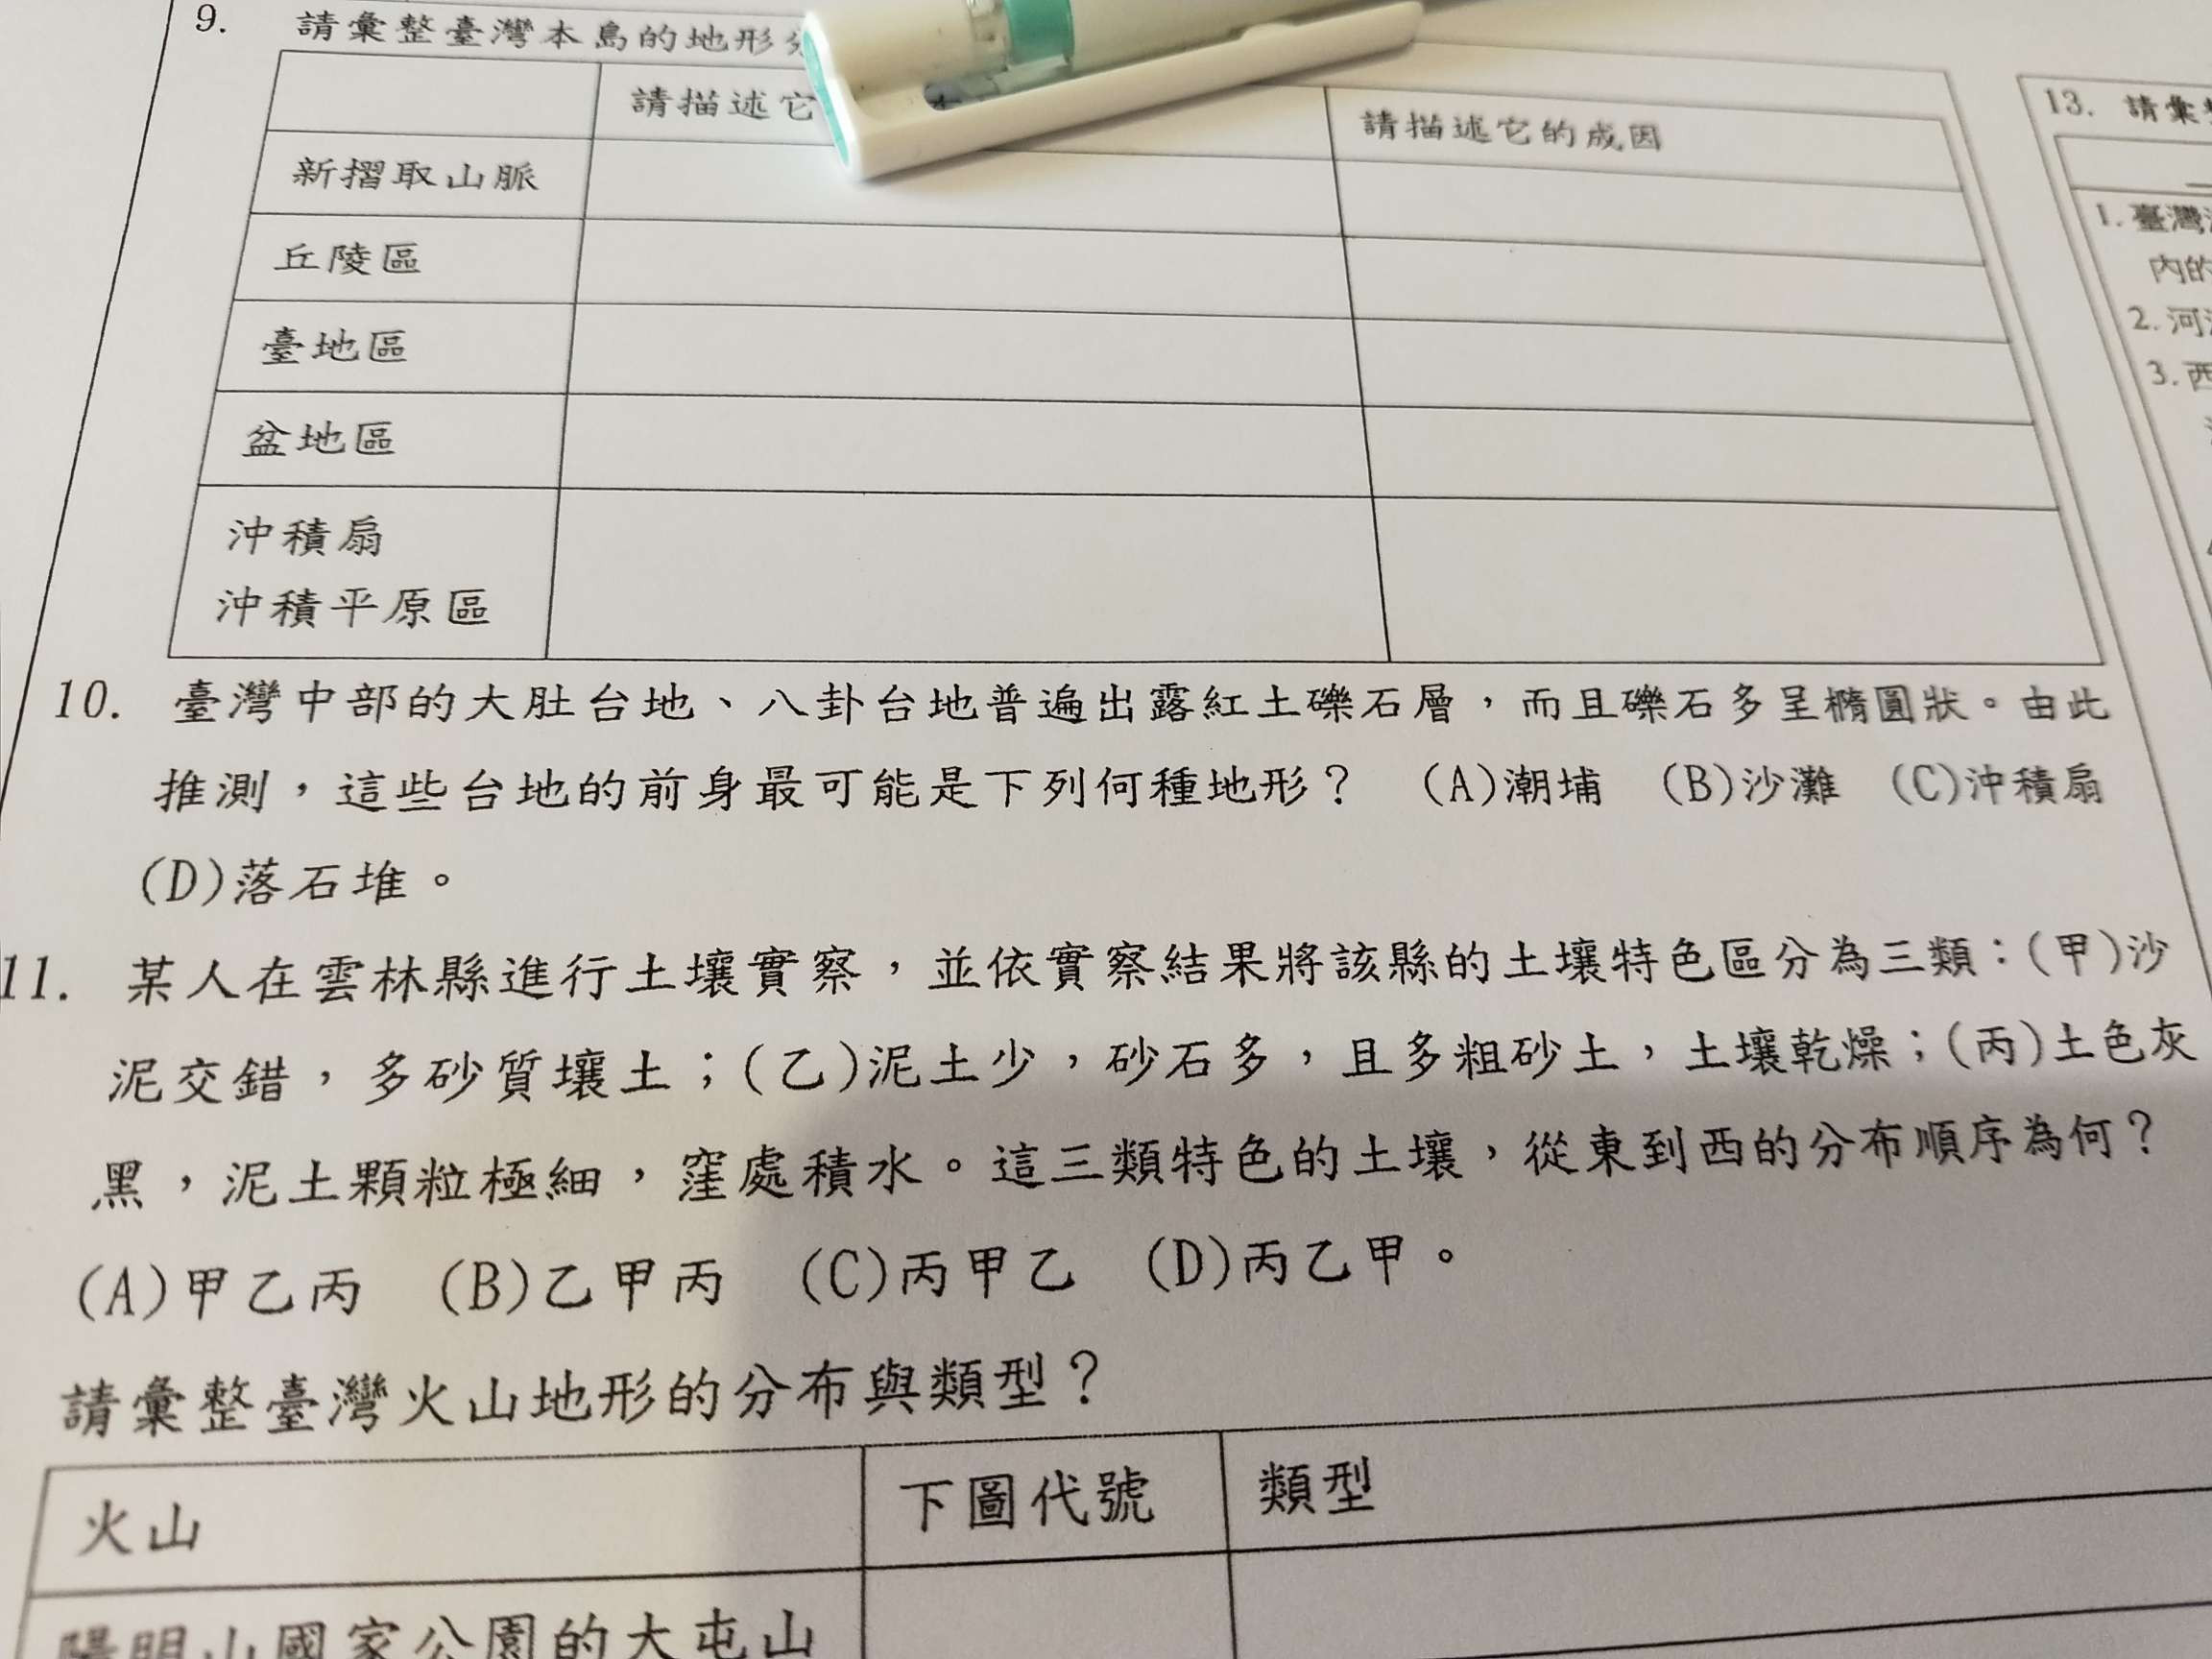 9. 請彙整臺灣本島的地形
請描述它
請描述它的成因
新摺取山脈
丘陵區
臺地區
盆地區
沖積扇
沖積平原區
10. 臺灣中部的大肚台地、八卦台地普遍出露紅土礫石層，而且礫石多呈橢圓狀。由此
推測，這些台地的前身最可能是下列何種地形？ (A)潮埔 (B)沙灘 (C)沖積扇
(D)落石堆。
11. 某人在雲林縣進行土壤實察，並依實察結果將該縣的土壤特色區分為三類：(甲)沙
泥交錯，多砂質壤土；(乙)泥土少，砂石多，且多粗砂土，土壤乾燥；(丙)土色灰
黑，泥土顆粒極細，窪處積水。這三類特色的土壤，從東到西的分布順序為何？
(A)甲乙丙 (B)乙甲丙 (C)丙甲乙 (D)丙乙甲。
請彙整臺灣火山地形的分布與類型？
火山
下圖代號
類型
陽明山國家公園的大屯山
13. 請彙
1. 臺灣
內的
2. 河
3. 西